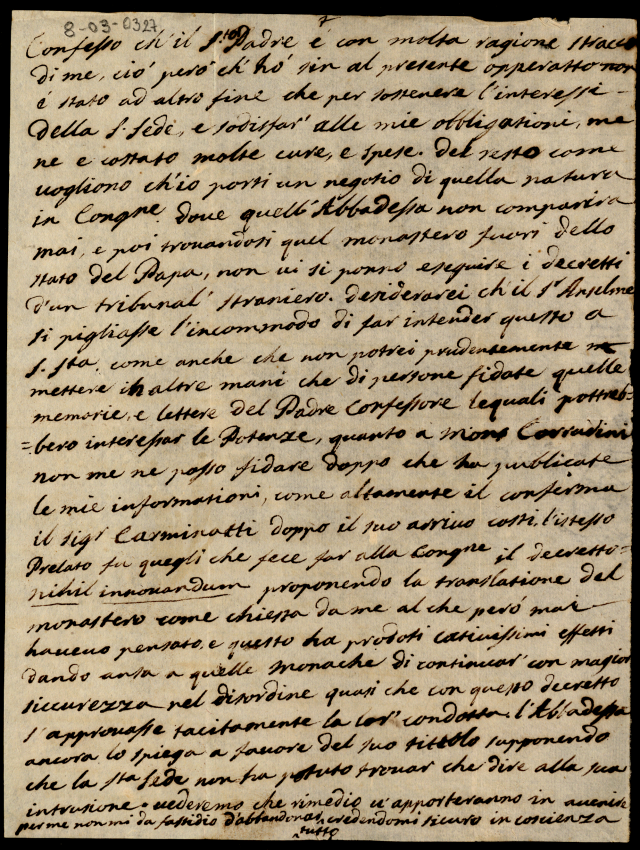 8-03-0327
Confesso ch'il S.to Padre é con molta ragione stracco
di me, ció peró ch'hó sin al presente opperatto non
é stato ad altro fine che per sostenere l'interessi
della S. Sede, e sodisfar' alle mie obligationi, me
ne e costato molte cure, e spese. del resto come
vogliono ch'io porti un negotio di quella natura
in Congne, dove quell'Abbadessa non comparira
mai, e poi trovandosi quel monastero fuori dello
stato del Papa, non vi si ponno eseguire i decretti
d'un tribunal' straniero. desiderarei ch'il Sr Anselme
si pigliasse l'incommodo di far intender questo a
S. Sta, come anche che non potrei prudentemente
mettere in altre mani che di persone fidate quelle
memorie, e lettere del Padre Confessore lequali pottreb=
=bero interessar le Potenze, quanto a Mons Corradini
non me ne posso fidare doppo che ha publicate
le mie informationi, come altamente il conferma
il sigr Carminatti doppo il suo arrivo costi, l'istesso
Prelato fu quegli che fece far alla Congne il decretto
nihil innovandum proponendo la translatione del
monastero come chiesta da me al che peró mai
havevo pensato, e questo ha prodoti cativissimi effetti
dando ansa a quelle monache di continuar' con magior
siccurezza nel disordine quasi che con questo decretto
s'approvasse tacitamente la lor' condotta, l'Abbadessa
ancora lo spiega a favore del suo tittolo supponendo
che la Sta Sede non ha potuto trovar che dire alla sua
intrusione. vederemo che rimedio vi apporteranno in avenire
per me non mi da fastidio d'abbandonar tutto credendomi sicuro in coscienza